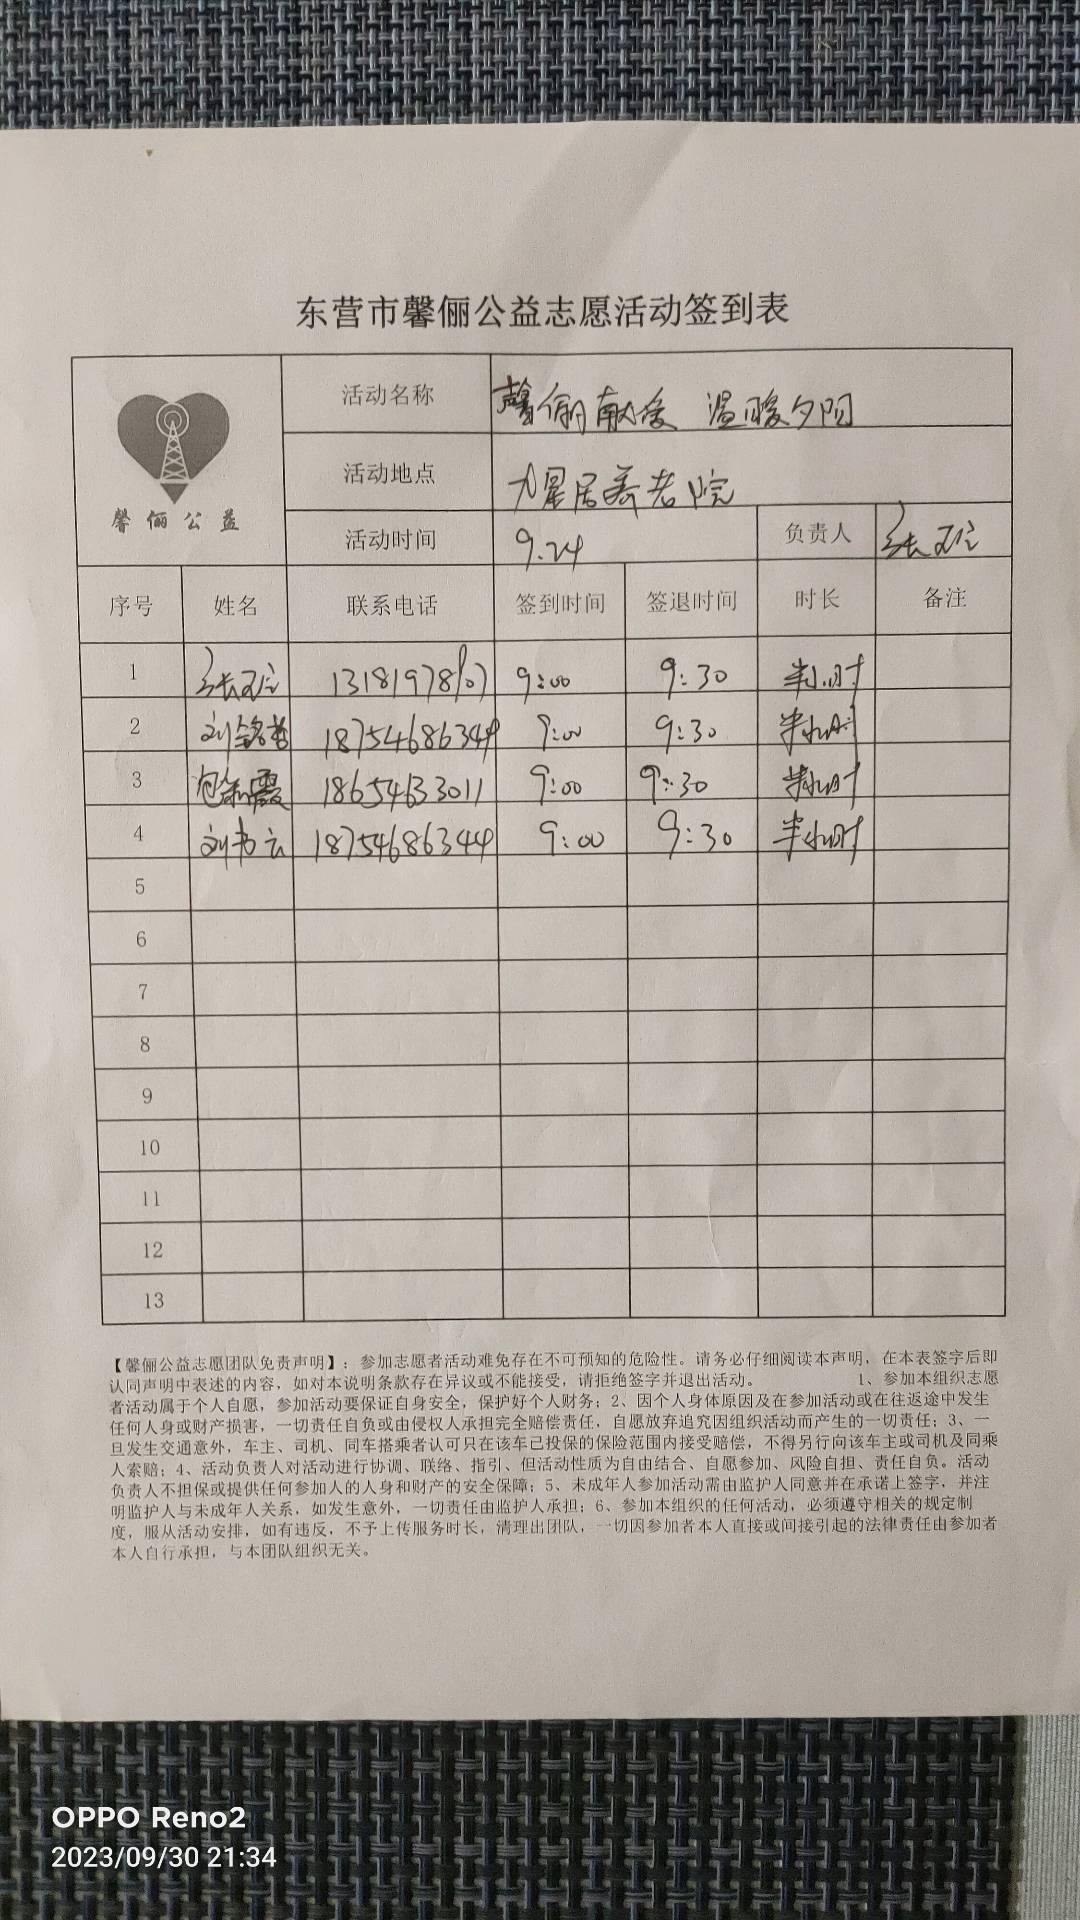 东营市馨俪公益志愿活动签到表
馨俪公益
活动名称 馨俪献爱 温暖夕阳
活动地点 星居养老院
活动时间 9.24 负责人 张
序号 姓名 联系电话 签到时间 签退时间 时长 备注
1 张 131819781 9:00 9:30 半小时
2 刘铭哲 18754686344 9:00 9:30 半小时
3 霞 18654633011 9:00 9:30 半小时
4 刘书云 18754686344 9:00 9:30 半小时
5
6
7
8
9
10
11
12
13
【馨俪公益志愿团队免责声明】：参加志愿者活动难免存在不可预知的危险性。请务必仔细阅读本声明，在本表签字后即
认同声明中表述的内容，如对本说明条款存在异议或不能接受，请拒绝签字并退出活动。 1、参加本组织志愿
者活动属于个人自愿，参加活动要保证自身安全，保护好个人财务；2、因个人身体原因及在参加活动或在往返途中发生
任何人身或财产损害，一切责任自负或由侵权人承担完全赔偿责任，自愿放弃追究因组织活动而产生的一切责任；3、一
旦发生交通意外，车主、司机、同车搭乘者认可只在该车已投保的保险范围内接受赔偿，不得另行向该车主或司机及同乘
人索赔；4、活动负责人对活动进行协调、联络、指引、但活动性质为自由结合、自愿参加、风险自担、责任自负。活动
负责人不担保或提供任何参加人的人身和财产的安全保障；5、未成年人参加活动需由监护人同意并在承诺上签字，并注
明监护人与未成年人关系，如发生意外，一切责任由监护人承担；6、参加本组织的任何活动，必须遵守相关的规定制
度，服从活动安排，如有违反，不予上传服务时长，清理出团队，一切因参加者本人直接或间接引起的法律责任由参加者
本人自行承担，与本团队组织无关。
OPPO Reno2
2023/09/30 21:34